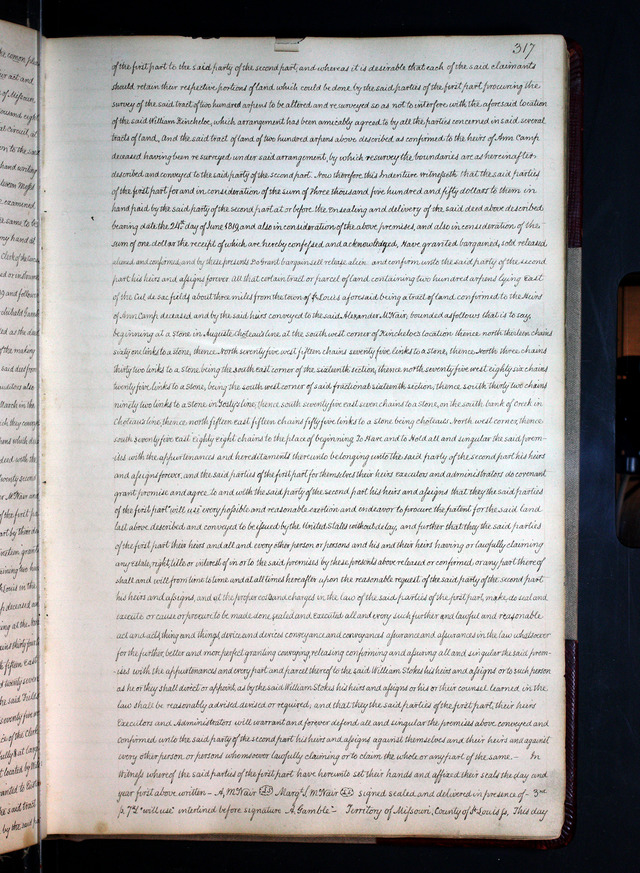 317
of the first part to the said party of the second part, and whereas it is desirable that each of the said claimants
should retain their respective portions of land which could be done, by the said parties of the first part procuring the
survey of the said tract of two hundred arpens to be altered and resurveyed so as not to interfere with the aforesaid location
of the said William Kincheloe, which arrangement has been amicably agreed to by all the parties concerned in said several
tracts of land, And the said tract of land of two hundred arpens above described as confirmed to the heirs of Ann Camp
deceased having been resurveyed under said arrangement, by which resurvey the boundaries are as hereinafter
described and conveyed to the said party of the second part. Now therefore this Indenture witnesseth that the said parties
of the first part for and in consideration of the sum of Three thousand five hundred and fifty dollars to them in
hand paid by the said party of the second part at or before the ensealing and delivery of the said deed above described
bearing date the 24th day of June 1819 and also in consideration of the above premises, and also in consideration of the
sum of one dollar the receipt of which are hereby confessed and acknowledged, Have granted bargained, sold released
aliened and confirmed, and by these presents Do Grant bargain sell release alien and confirm unto the said party of the second
part his heirs and assigns forever all that certain tract or parcel of land containing two hundred arpens lying East
of the Cul de sac fields about three miles from the town of St Louis aforesaid being a tract of land confirmed to the Heirs
of Ann Camp deceased and by the said heirs conveyed to the said Alexander McNair, bounded as follows that is to say,
beginning at a stone in Auguste Chouteau line at the south west corner of Kincheloe's location thence north thirteen chains
sixty one links to a stone, thence North seventy five west fifteen chains seventy five links to a stone, thence North three chains
thirty two links to a stone, being the south east corner of the sixteenth section, thence north seventy five west eighty six chains
twenty five links to a stone, being the south west corner of said fractional sixteenth section, thence south thirty two chains
ninety two links to a stone in line, thence south seventy five east seven chains to a stone, on the south bank of Creek in
Chouteau line, thence north fifteen east fifteen chains fifty five links to a stone being Chouteau North west corner, thence
south seventy five east eighty eight chains to the place of beginning To Have and to Hold all and singular the said prem-
ises with the appurtenances and hereditaments thereunto belonging unto the said party of the second part his heirs
and assigns forever, and the said parties of the first part for themselves their heirs executors and administrators do covenant
grant promise and agree to and with the said party of the second part his heirs and assigns that they the said parties
of the first part "will use" every possible and reasonable exertion and endeavor to procure the patent for the said land
last above described and conveyed to be issued by the United States without delay, and further that they the said parties
of the first part their heirs and all and every other person or persons and his and their heirs having or lawfully claiming
any estate, right title or interest of in or to the said premises by these presents above released or confirmed or any part thereof
shall and will from time to time and at all times hereafter upon the reasonable request of the said party of the second part
his heirs and assigns, and at the proper costs and charges in the law of the said parties of the first part, make do seal and
execute or cause or procure to be made done, sealed and executed all and every such further and lawful and reasonable
act and acts, thing and things, device and devices conveyance and conveyances assurance and assurances in the law whatsoever
for the further, better and more perfect granting conveying, releasing confirming and assuring all and singular the said prem-
ises with the appurtenances and every part and parcel thereof to the said William Stokes his heirs and assigns or to such person
as he or they shall direct or appoint, as by the said William Stokes his heirs and assigns or his or their counsel learned in the
law shall be reasonably advised devised or required, and that they the said parties of the first part, their heirs
Executors and Administrators will warrant and forever defend all and singular the premises above conveyed and
confirmed unto the said party of the second part his heirs and assigns against themselves and their heirs and against
every other person or persons whomsoever lawfully claiming or to claim the whole or any part of the same. — In
Witness whereof the said parties of the first part have hereunto set their hands and affixed their seals the day and
year first above written — A. McNair Margt. McNair signed sealed and delivered in presence of - 3rd
p. 7th L "will use" interlined before signature A. Gamble - Territory of Missouri, County of St Louis ss, This day